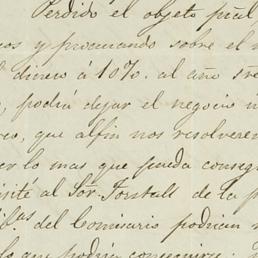 Perdido el objeto pral,
cos y procurando sobre el
dinero á 10%. al año
podria dejar el negocio
que alfin nos resolveren
lo mas que pueda conseg
al Sor. Fontall de la
del Comisario podrian
que podria conseguirse